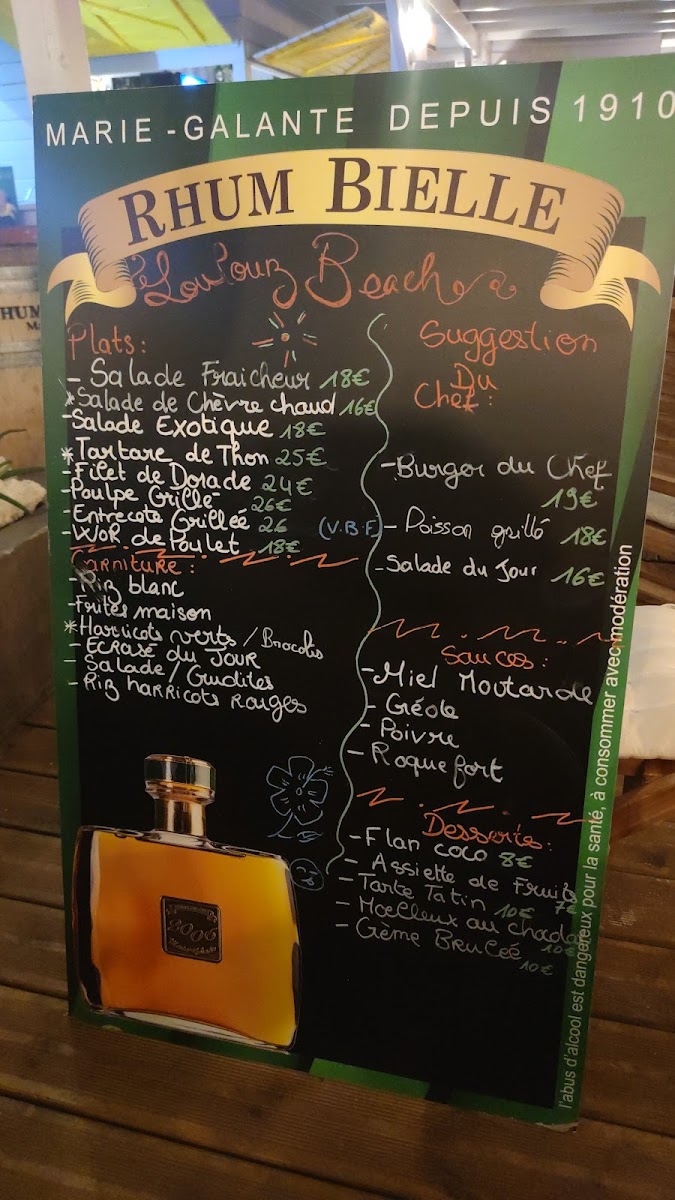 MARIE-GALANTE DEPUIS 1910
RHUM BIELLE
Beach
Plats:
- Salade Fraicheur 18€
* Salade de Chèvre chaud 16€
- Salade Exotique 18€
* Tartare de Thon 25€
- Filet de Dorade 24€
- Poulpe Grillé 26€
- Entrecote Grilleé 26 (V.B.F)
- WOK de Poulet 18€
Garniture:
- Riz blanc
- Frites maison
* Harricots verts / Brocolis
- Ecrasé du JOUR
- Salade / Crudites
- Riz harricots rouges
Suggestion
Du
Chef:
- Burger du Chef
19€
- Poisson grillé 18€
- Salade du Jour 16€
Sauces:
- Miel Moutarde
- Créole
- Poivre
- Roquefort
Desserts:
- Flan coco 8€
- Assiette de Fruits
7€
- Tarte Tatin 10€
- Moelleux au chocolat
10€
- Crème Bruleé
10€
2006
l'abus d'alcool est dangereux pour la santé, à consommer avec modération
RHUM